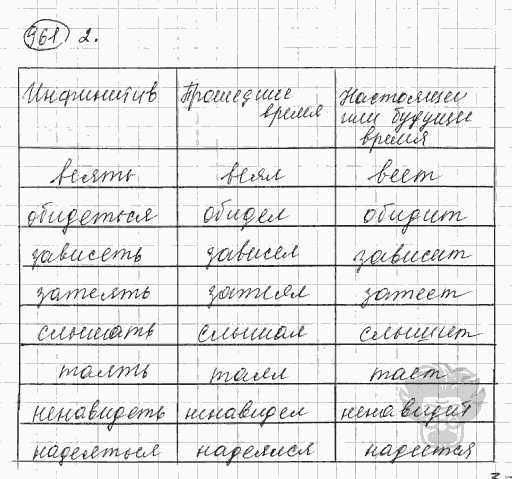 961 2.
Инфинитив Прошедшее время Настоящее или будущее время
веять веял веет
обидеться обидел обидит
зависеть зависел зависит
затеять затеял затеет
слышать слышал слышит
таять таял тает
ненавидеть ненавидел ненавидит
надеяться надеялся надеется